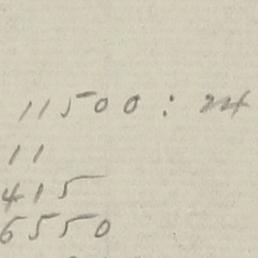 11500 : 24
11
415
6550